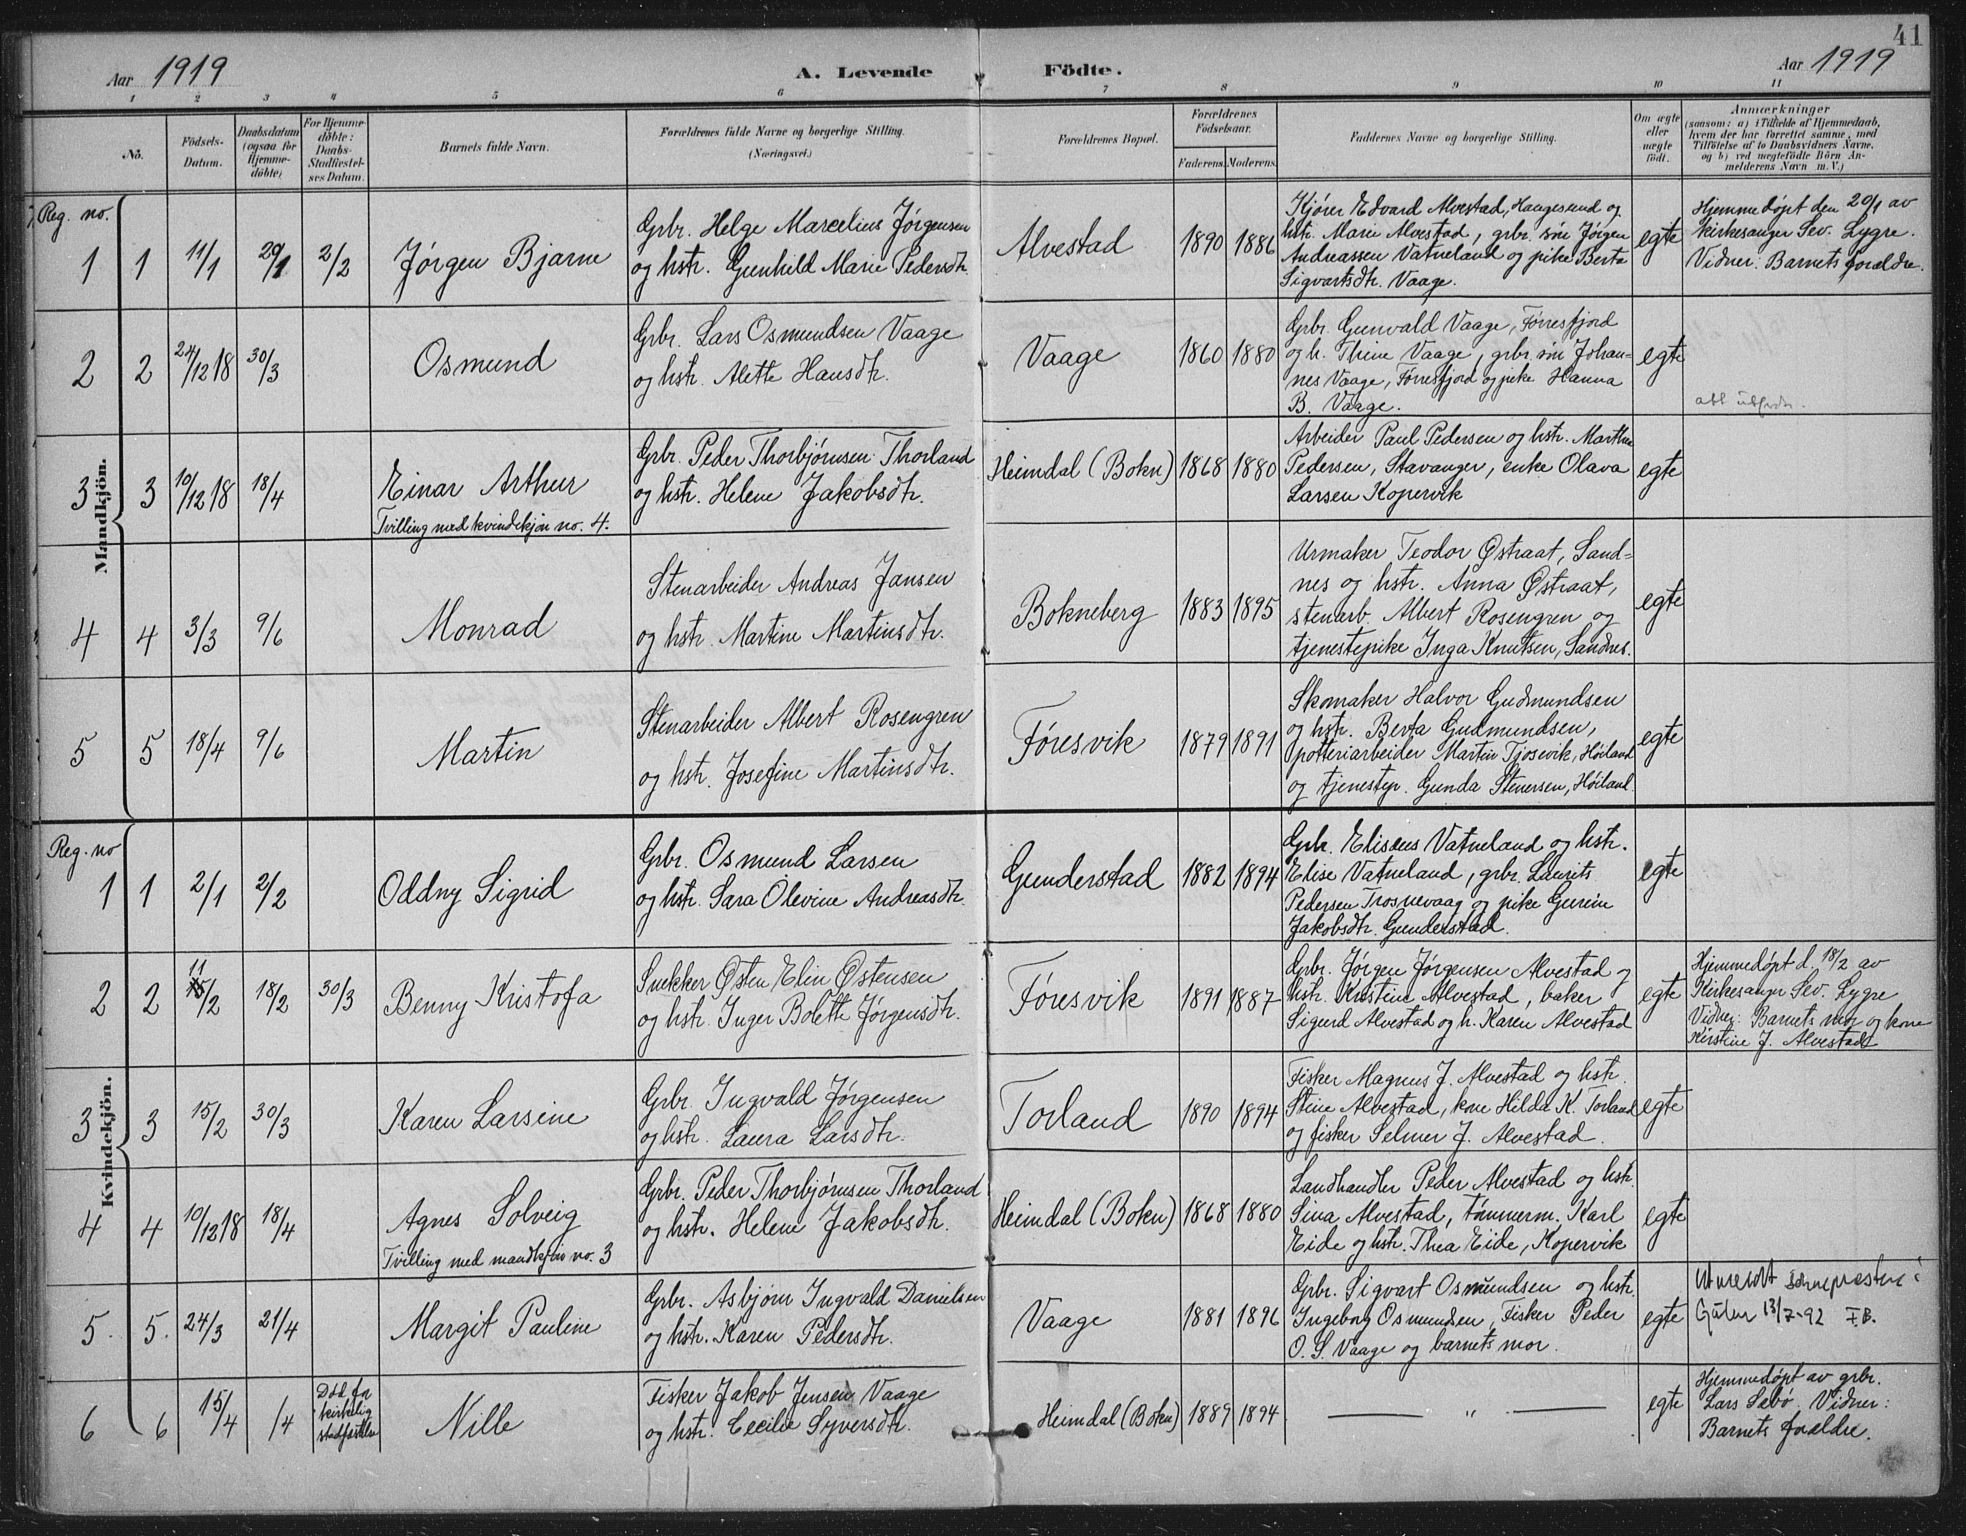 41
Aar 1919
A. Levende Födte.
Aar 1919
1 2 3 4 5 6 7 8 9 10 11
No.
Födsels-Datum.
Daabsdatum (ogsaa for Hjemme-døbte)
For Hjemme-døbte: Daabs-Stadfæstel-ses Datum.
Barnets fulde Navn.
Forældrenes fulde Navne og borgerlige Stilling. (Næringsvei.)
Forældrenes Bopæl.
Forældrenes Fødselsaar.
Faderens. Moderens.
Faddernes Navne og borgerlige Stilling.
Om ægte eller uægte født.
Anmærkninger
(saasom: a) i Tilfælde af Hjemmedaab,
hvem der har forrettet samme, med
Tilföielse af to Daabsvidners Navne,
og b) ved uægtefødte Börn An-
melderens Navn m. V.)
Mandkjön.
Reg. no.
1 1 11/1 20/1 2/2 Jørgen Bjarne
Grbr. Helge Marcelius Jørgensen
og hstr. Gunhild Marie Pedersdtr.
Alvestad 1890 1886
Kjører Edvard Alvestad, Haugesund og
hstr. Marie Alvestad, grbr. søn Jørgen
Andreassen Vatneland og pike Berta
Sigvartsdtr. Vaage.
egte
Hjemmedøpt den 20/1 av
kirkesanger Sev. Lygre.
Vidner: Barnets forældre.
2 2 24/12 18 30/3 Osmund
Grbr. Lars Osmundsen Vaage
og hstr. Alette Hansdtr.
Vaage 1860 1880
Grbr. Gunvald Vaage, Førresfjord
og h. Thine Vaage, grbr. søn Johan=
nes Vaage, Førresfjord og pike Hanna
B. Vaage.
egte
att utferdr.
3 3 10/12 18 18/4 Einar Arthur
Tvilling med kvindekjøn no. 4.
Grbr. Peder Thorbjørnsen Thorland
og hstr. Helene Jakobsdtr.
Heimdal (Bokn) 1868 1880
Arbeider Paul Pedersen og hstr. Marthe
Pedersen, Stavanger, enke Olava
Larsen Kopervik
egte
4 4 3/3 9/6 Monrad
Stenarbeider Andreas Jansen
og hstr. Martine Martinsdtr.
Bokneberg 1883 1895
Urmaker Teodor Østraat, Sand=
nes og hstr. Anna Østraat,
stenarb. Albert Rosengren og
tjenestepike Inga Knutsen, Sandnes.
egte
5 5 18/4 9/6 Martin
Stenarbeider Albert Rosengren
og hstr. Josefine Martinsdtr.
Føresvik 1879 1891
Skomaker Halvor Gudmundsen
og hstr. Berta Gudmundsen,
potteriarbeider Martin Tjosevik, Høiland
og tjenestep. Gunda Stenersen, Høiland
egte
Kvindekjön.
Reg. no
1 1 2/1 2/2 Oddny Sigrid
Grbr. Osmund Larsen
og hstr. Sara Olevine Andreasdtr.
Gunderstad 1882 1894
Grbr. Eliseus Vatneland og hstr.
Elise Vatneland, grbr. Laurits
Pedersen Trosnevaag og pike Gurine
Jakobsdtr. Gunderstad.
egte
2 2 11/2 18/2 30/3 Benny Kristofa
Snekker Østen Elin Østensen
og hstr. Inger Bolette Jørgensdtr.
Føresvik 1891 1887
Grbr. Jørgen Jørgensen Alvestad og
hstr. Kristine Alvestad, baker
Sigurd Alvestad og h. Karen Alvestad
egte
Hjemmedøpt d. 18/2 av
Kirkesanger Sev. Lygre
Vidner: Barnets mor og kone
Kirstine J. Alvestad
3 3 15/2 30/3 Karen Larsine
Grbr. Ingvald Jørgensen
og hstr. Laura Larsdtr.
Torland 1890 1894
Fisker Magnus J. Alvestad og hstr.
Stine Alvestad, kone Hilda K. Torland
og fisker Selmer J. Alvestad.
egte
4 4 10/12 18 18/4 Agnes Solveig
Tvilling med mandkjøn no. 3
Grbr. Peder Thorbjørnsen Thorland
og hstr. Helene Jakobsdtr.
Heimdal (Bokn) 1868 1880
Landhandler Peder Alvestad og hstr.
Sina Alvestad, tømmerm. Karl
Eide og hstr. Thea Eide, Kopervik
egte
5. 5. 24/3 21/4 Margit Pauline
Grbr. Asbjørn Ingvald Danielsen
og hstr. Karen Pedersdtr.
Vaage 1881 1896
Grbr. Sigvart Osmundsen og hstr.
Ingeborg Osmundsen, Fisker Peder
O. S. Vaage og barnets mor.
egte
Utmeldt sokneprestens i
13/7-92 F.B.
6 6 15/4 /4 Død før kirkelig stadfæstelse Nille
Fisker Jakob Jensen Vaage
og hstr. Cecilie Syversdtr.
Heimdal (Bokn) 1889 1894
— " —
egte
Hjemmedøpt av grbr.
Lars Sebø. Vidner:
Barnets forældre.